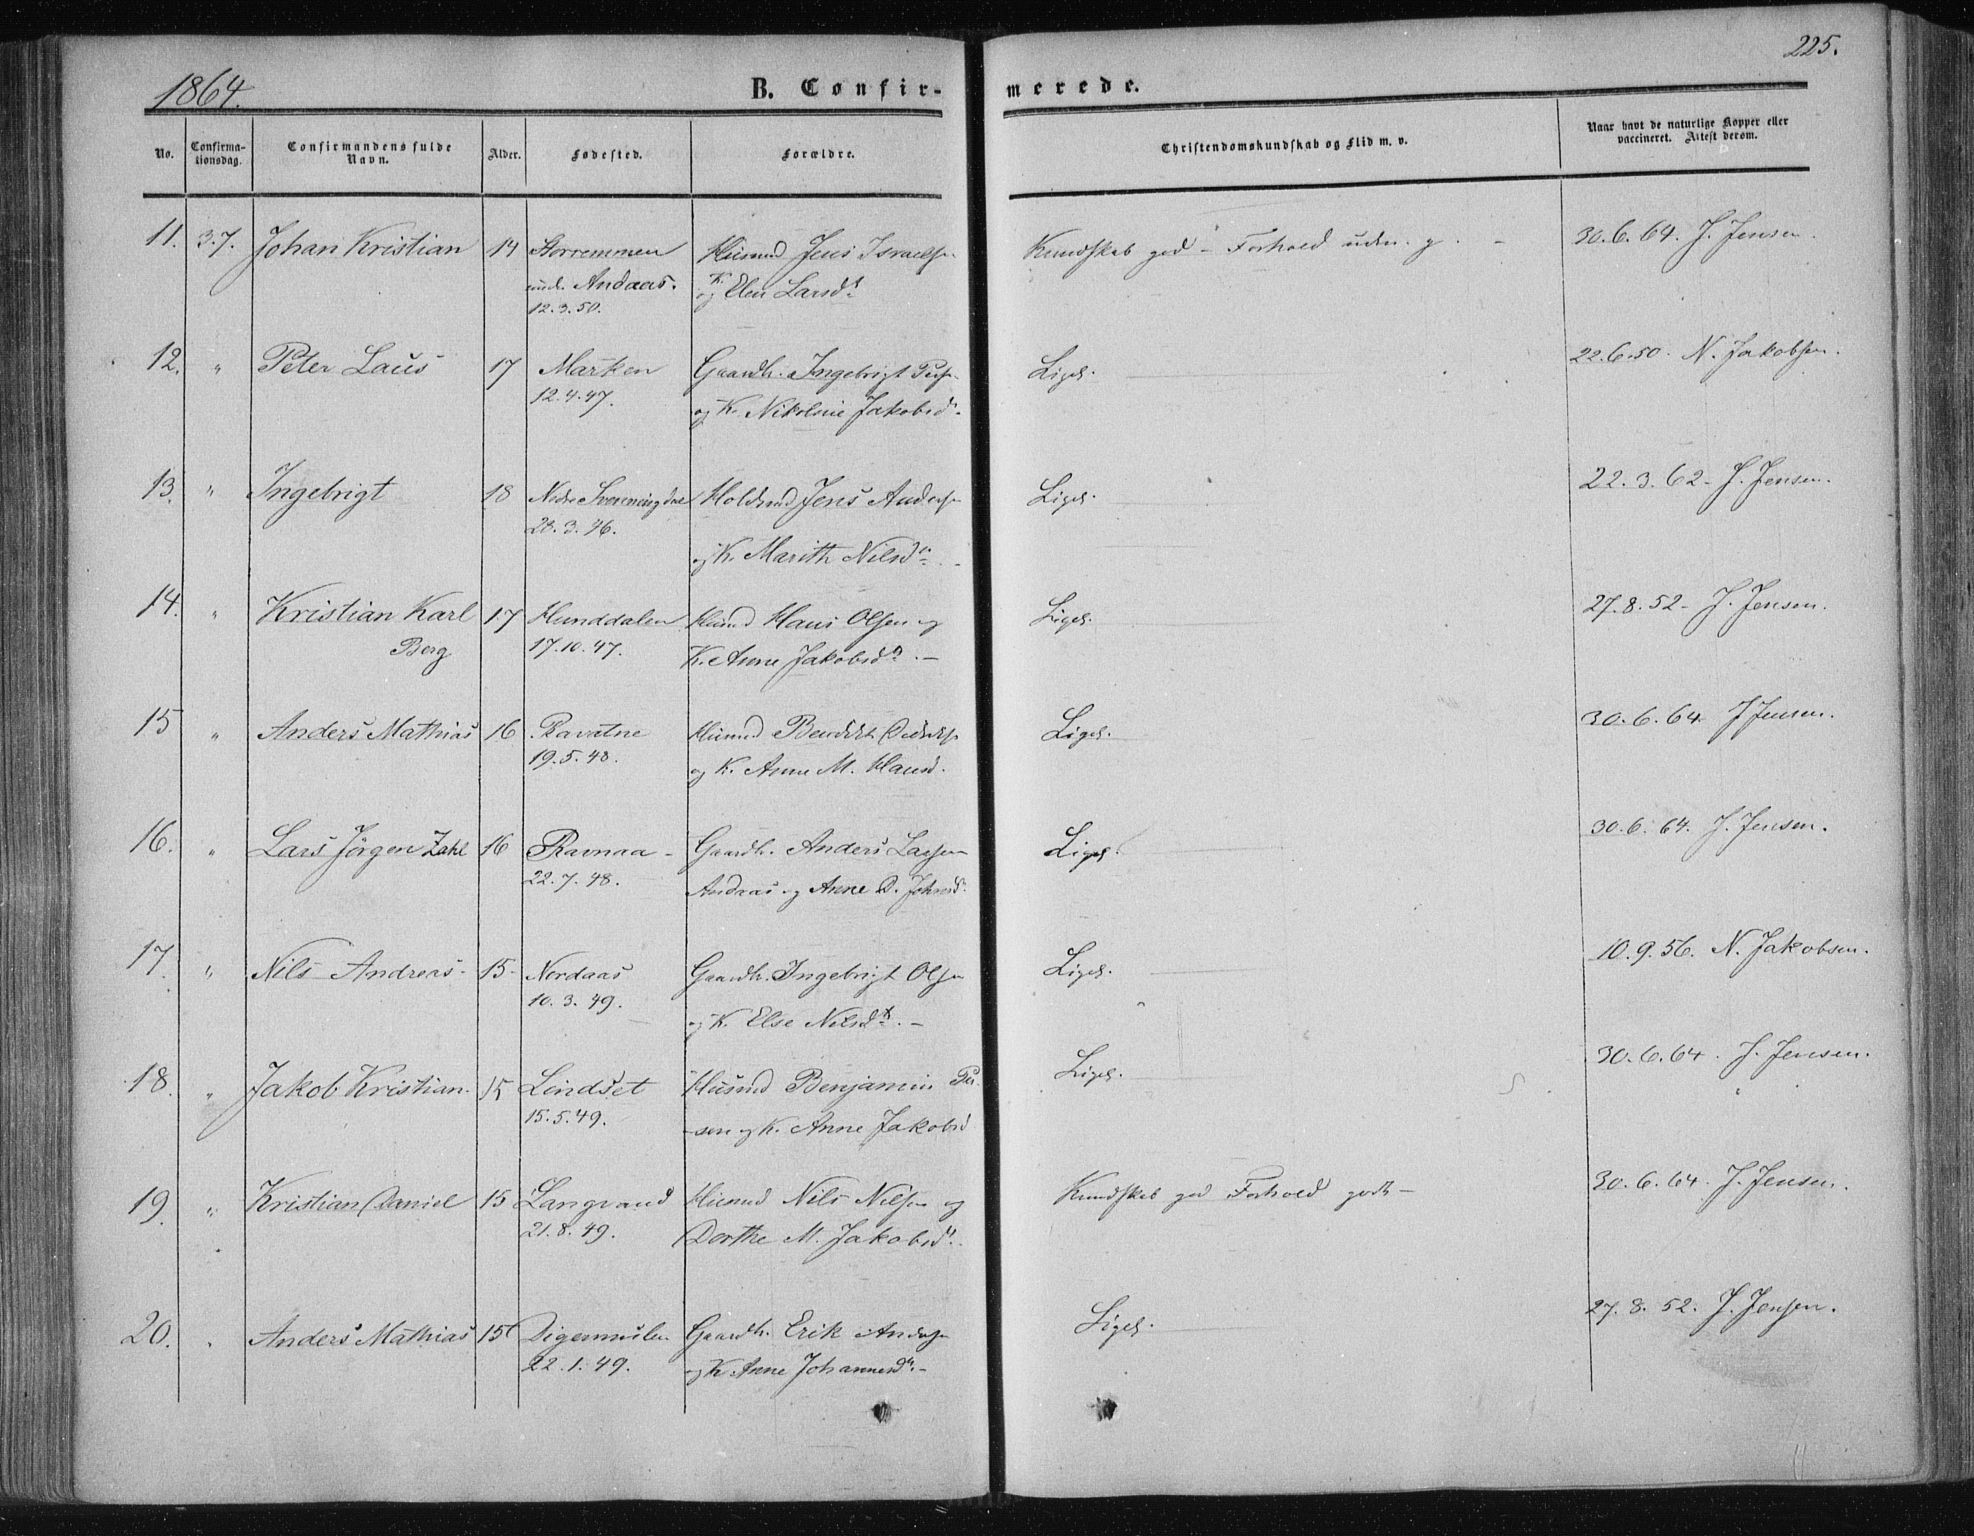 1864.
B. Confirmerede.
225.
No.
Confirmationsdag.
Confirmandens fulde Navn.
Alder.
Fødested.
Forældre.
Christendomskundskab og Flid m. v.
Naar havt de naturlige Kopper eller vaccineret. Attest derom.
11. 3.7. Johan Kristian 14 Storremmen Husmd Jens Israelsn Kundskab god - Forhold uden. g. - 30.6.64. J. Jensen.
und. Andaas. K.
12.3.50. og Elen Larsdt
12. " Peter Laus 17 Marken Gaardb. Ingebrigt Persn Ligel. 22.6.50. N. Jakobsen.
12.4.47. og K. Nikoline Jakobsd.
13. " Ingebrigt 18 Nedre Svenningdal Holdsmd Jens Andersn Ligel. 22.3.62 - J. Jensen.
28.3.46. og K. Marith Nilsdt. -
14. " Kristian Karl 17 Hunddalen Husmd Hans Olsen og Ligel. 27.8.52 - J. Jensen.
Berg 17.10.47. K. Anne Jakobsdt. -
15 " Anders Mathias 16 Ravatne Husmd Bendikt Ligel. 30.6.64 J Jensen.
19.5.48. og K. Anne M. Hansd.
16. " Lars Jörgen Zahl 16 Ravnaa - Gaardb. Anders Larsen Ligel. 30.6.64. J. Jensen.
22.7.48. Andaas og Anne D. Johnsd.
17. " Nils Andreas - 15 - Nordaas Gaardb. Ingebrigt Olsen Ligel. 10.9.56. N. Jakobsen.
10.3.49. og K. Else Nilsdt. -
18. " Jakob Kristian. 15 Lindset Husmd Benjamin Per- Ligel. 30.6.64. J. Jensen.
15.5.49. -sen og K. Anne Jakobsd
19. " Kristian Daniel 15 Langvand Husmd Nils Nilsen og Kundskab god Forhold godt - 30.6.64. J. Jensen.
21.8.49. Dorthe M. Jakobsdt.
20. " Anders Mathias 15 Digermulen Gaardb. Erik Andersn Ligel. 27.8.52. J. Jensen.
22.1.49. og K Anne Johannesdt. -